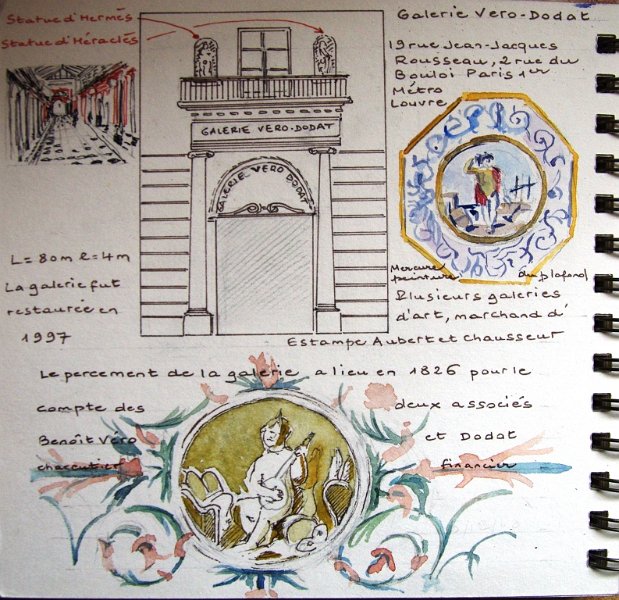 Statue d'Hermès
Statue d'Héraclès
Galerie Vero-Dodat
19 rue Jean-Jacques
Rousseau, 2 rue du
Bouloi Paris 1er
Métro
Louvre
GALERIE VERO-DODAT
GALERIE VERO DODAT
L = 80m l = 4m
La galerie fut
restaurée en
1997
Mercure
peinture du plafond
Plusieurs galeries
d'art, marchand d'
Estampe Aubert et chausseur
Le percement de la galerie a lieu en 1826 pour le
compte des deux associés
Benoît Véro et Dodat
charcutier financier